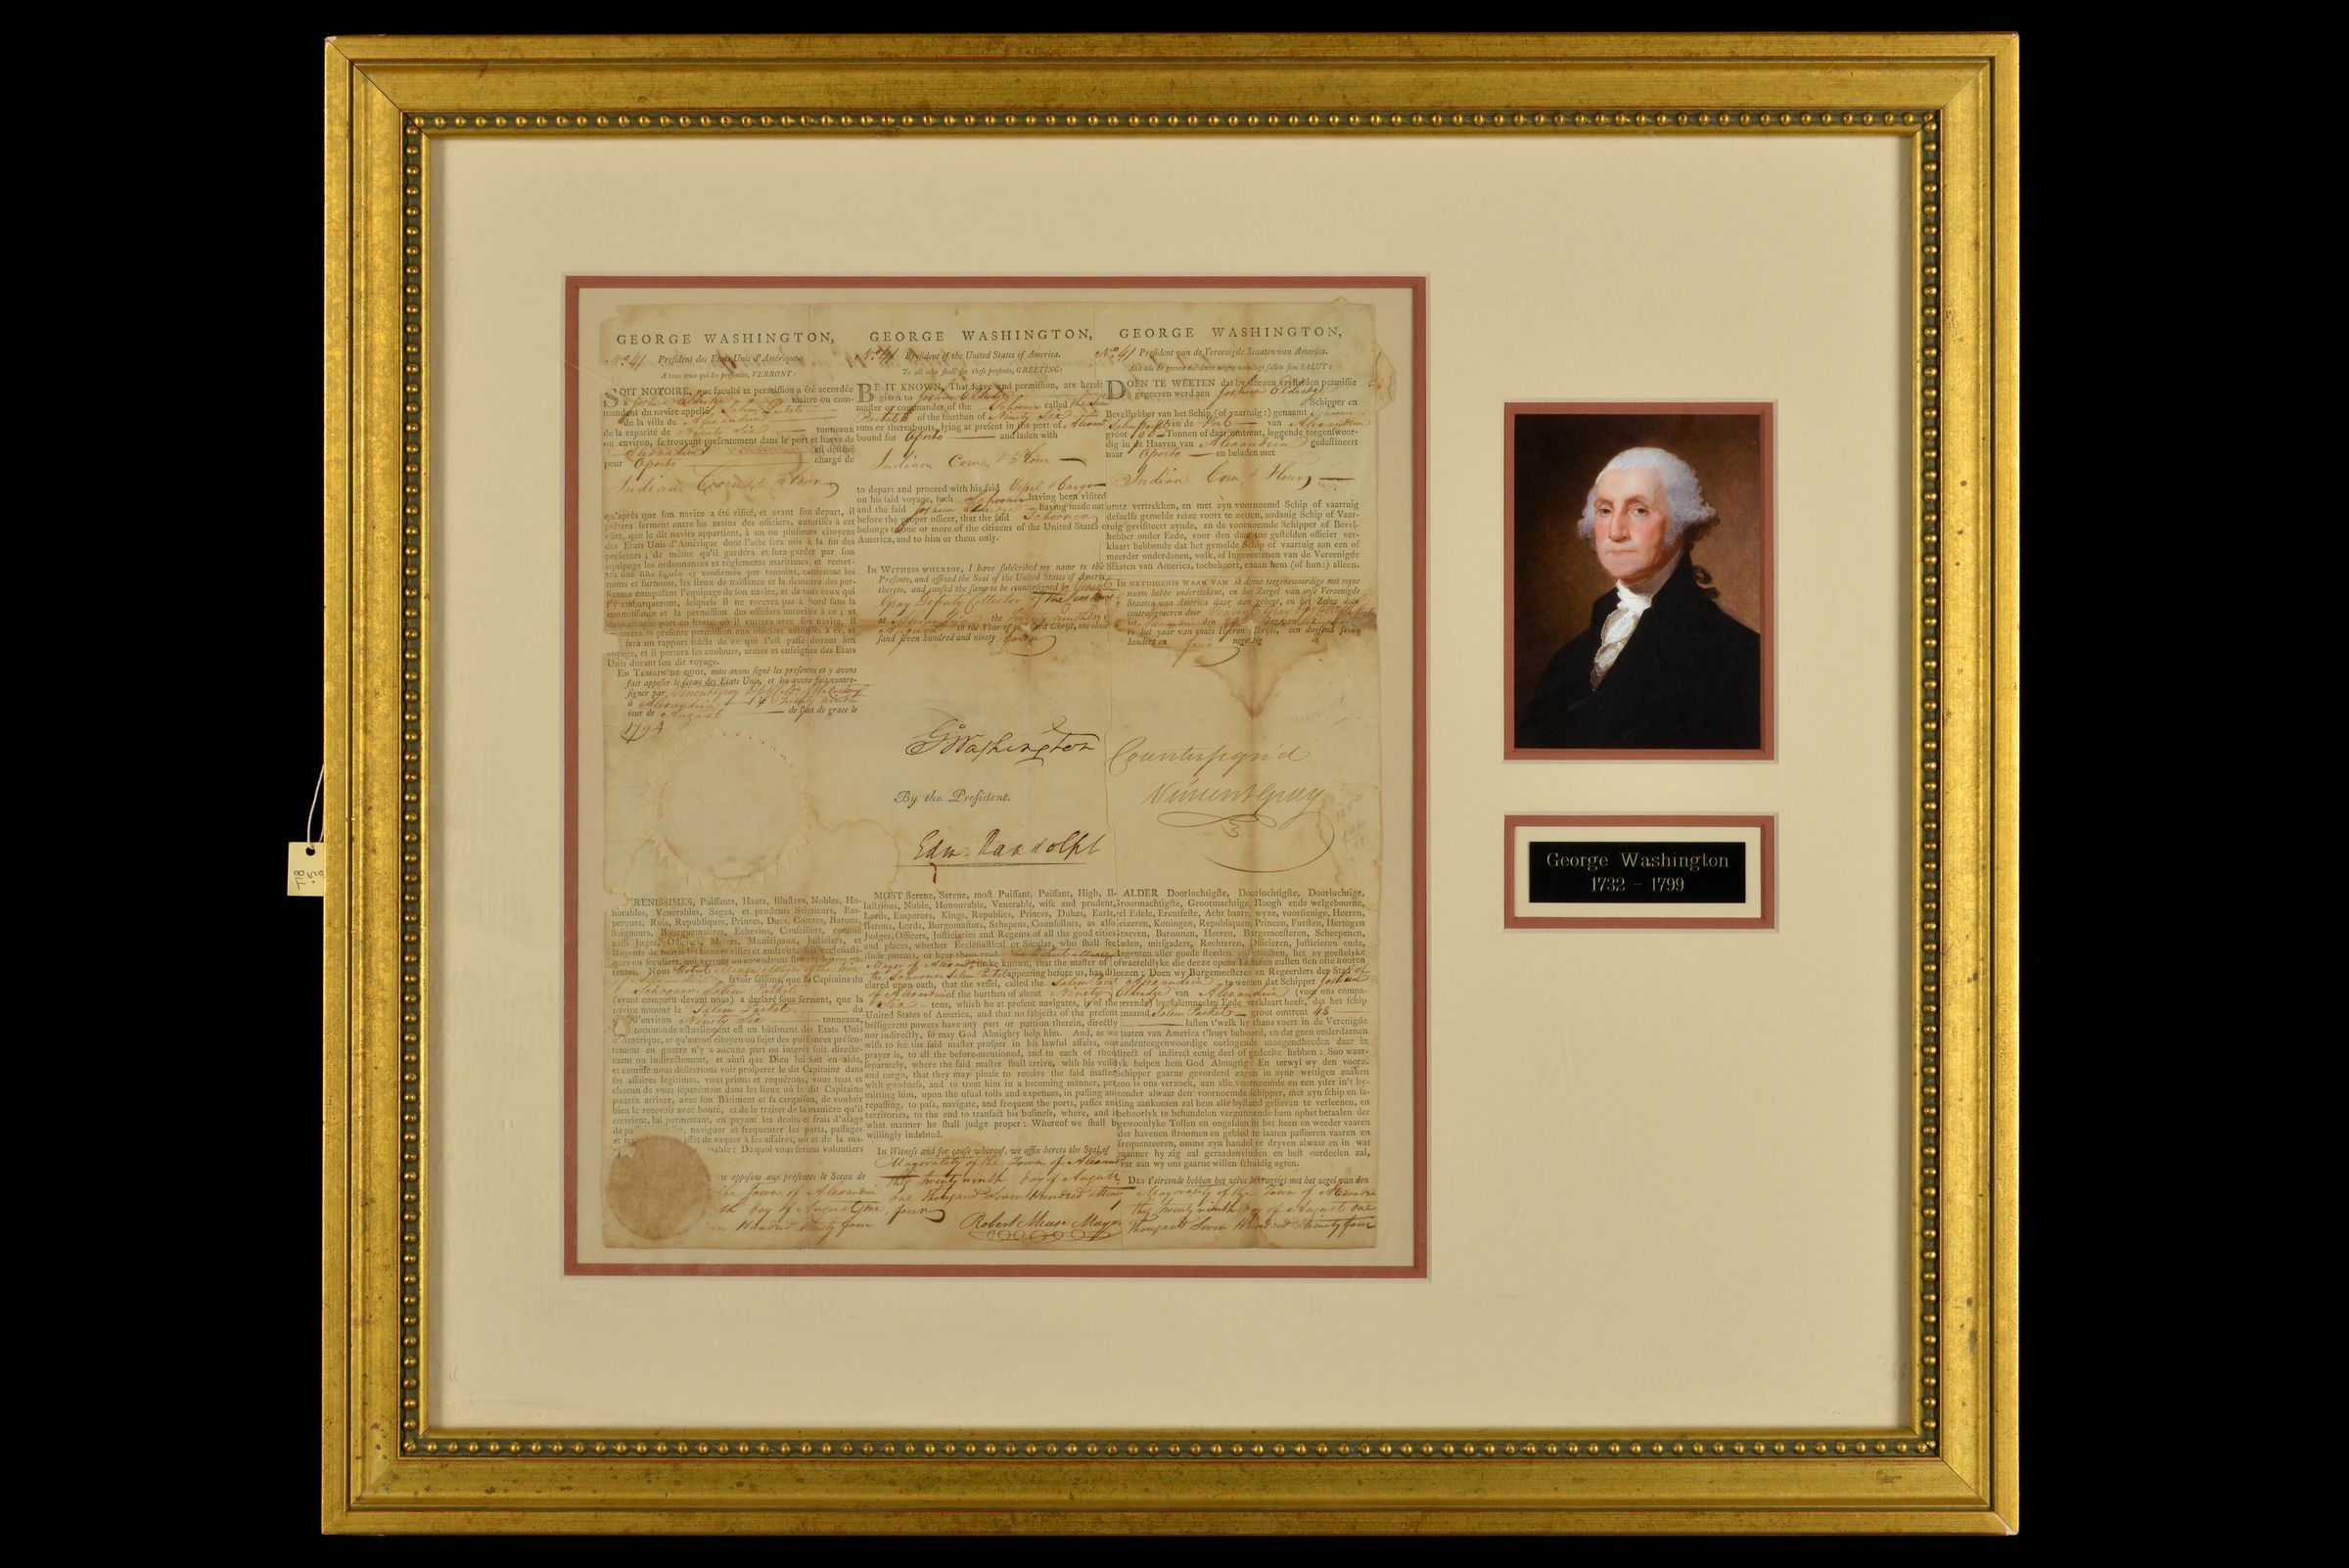 GEORGE WASHINGTON,
Nº 41 Preſident des Etats Unis d'Amérique.
A tous ceux qui les preſentes, VERRONT:
SOIT NOTOIRE, que faculté et permiſſion a été accordée
a Joſhua Eldridge maitre ou com-
mandant du navire appellé Salem Packet
de la ville de Alexandria
de la capacité de Ninety Six tonneaux
ou environ, ſe trouvant preſentement dans le port et havre de
Alexandria eſt deſtiné
pour Oporto chargé de
Indian Corn, & Flour
qu'après que ſon navire a été viſité, et avant ſon depart, il
prêtera ſerment entre les mains des officiers, autoriſés à cet
effet, que le dit navire appartient, à un ou pluſieurs citoyens
des Etats Unis d'Amérique dont l'acte ſera mis à la fin des
préſentes; de même qu'il gardera et fera garder par ſon
équipage les ordonnances et règlements maritimes, et remet-
tra une liſte ſignée et confirmée par temoins, contenant les
noms et ſurnoms, les lieux de naiſſance et la demeure des per-
ſonnes compoſant l'equipage de ſon navire, et de tous ceux qui
s'y embarqueront, leſquels il ne recevra pas à bord ſans la
connoiſſance et la permiſſion des officiers autoriſés à ce; et
dans chaque port ou havre où il entrera avec ſon navire, il
montrera la preſente permiſſion aux officiers autoriſés à ce, et
fera un rapport fidèle de ce qui s'eſt paſſé durant ſon
voyage, et il portera les couleurs, armes et enſeignes des Etats
Unis durant ſon dit voyage.
EN TEMOIN DE QUOI, nous avons ſigné les preſentes et y avons
fait appoſer le ſceau des Etats Unis, et les avons fait contre-
ſigner par Vincent Gray
à Alexandria le Twenty Ninth
jour de Auguſt de l'an de grace le
1794
GEORGE WASHINGTON,
Nº 41 Preſident of the United States of America.
To all who ſhall ſee theſe preſents, GREETING:
BE IT KNOWN, That leave and permiſſion, are hereby
given to Joſhua Eldridge
maſter or commander of the Schooner called the Salem
Packet of the burthen of Ninety Six
tons or thereabouts, lying at preſent in the port of Alexan
bound for Oporto and laden with
Indian Corn, & Flour
to depart and proceed with his ſaid Veſſel & Cargo
on his ſaid voyage, ſuch Schooner having been viſited
and the ſaid Joſhua Eldridge having made oath
before the proper officer, that the ſaid Schooner
belongs to one or more of the citizens of the United States of
America, and to him or them only.
IN WITNESS WHEREOF, I have ſubſcribed my name to theſe
Preſents, and affixed the Seal of the United States of America
thereto, and cauſed the ſame to be counterſigned by Vincent
Gray Deputy Collector of the
at Alexandria the Twenty Ninth day of
Auguſt in the Year of our Lord Chriſt, one thou-
ſand ſeven hundred and ninety four
GEORGE WASHINGTON,
Nº 41 Preſident van de Vereenigde Staaten van America.
Aan alle de geenen die deeze tegenwoordige ſullen ſien SALUT:
DOEN TE WEETEN dat by deezen vryheid en permiſſie
gegeeven werd aen Joſhua Eldridge
Schipper en
Bevelhebber van het Schip (of vaartuig:) genaamt Schooner
Salem Packet van de Port van Alexandria
groot 96 Tonnen of daar omtrent, leggende teegenſwoor-
dig in de Haaven van Alexandria gedeſtineert
naar Oporto en beladen met
Indian Corn, & Flour
omte vertrekken, en met zyn voornoemd Schip of vaartuig
deſſelfs gemelde reize voort te zetten, zodanig Schip of Vaar-
tuig geviſiteert zynde, en de voornoemde Schipper of Bevel-
hebber onder Eede, voor den daar toe geſtelden officier ver-
klaart hebbende dat het gemelde Schip of vaartuig aan een of
meerder onderdanen, volk, of Ingezeetenen van de Vereenigde
Staaten van America, toebehoort, en aan hem (of hun:) alleen.
IN GETUIGENIS WAAR VAN ik deeze teegenswoordige met myne
naam hebbe onderteekent, en het Zeegel van onſe Vereenigde
Staaten van America daar aan gehegt, en het Zelve doen
contraſigneeren door Vincent Gray
te Alexandria den
in het jaar van onzen Heeren Chriſti, een duyſend ſeven
hondert en four negentig
G:Washington
By the Preſident.
Edm. Randolph
Counterſign'd
Vincent Gray
SERENISSIMES, Puiſſants, Hauts, Illuſtres, Nobles, Ho-
norables, Venerables, Sages, et prudents Seigneurs, Em-
pereurs, Rois, Republiques, Princes, Ducs, Comtes, Barons,
Seigneurs, Bourguemaitres, Echevins, Conſeillers, comme
auſſi Juges, Officiers, Maires, Municipaux, Juſticiers, et
Regents de toutes les bonnes villes et endroits, ſoit eccleſiaſti-
ques ou ſeculiers, qui verront ou entendront lire les preſen-
tentes. Nous Robert Mease Mayor of the town
of Alexandria ſavoir faiſons, que la Capitaine du
Schooner Salem Packet
(ayant comparu devant nous) a declaré ſous ſerment, que la
navire nommé le Salem Packet du
port d'environ Ninety Six tonneaux,
commande actuellement eſt un bâtiment des Etats Unis
d'Amérique, et qu'aucun citoyen ou ſujet des puiſſances préſen-
tement en guerre n'y a aucune part ou interêt ſoit directe-
ment ou indirectement, et ainſi que Dieu lui ſoit en aide,
et comme nous déſirerions voir proſperer le dit Capitaine dans
ſes affaires legitimes, vous prions et requérons, vous tous et
chacun de vous ſéparément dans les lieux où le dit Capitaine
pourra arriver, avec ſon Bâtiment et ſa cargaiſon, de vouloir
bien le recevoir avec bonté, et de le traiter de la manière qu'il
convient, lui permettant, en payant les droits et frais d'uſage
naviguer et frequenter les ports, paſſages
effet de vaquer à ſes affaires, où et de la ma-
De quoi vous ferons volontiers
appoſons aux préſentes le Sceau de
the Town of Alexandria
th day of Auguſt One
Hundred Ninety four
MOST Serene, Serene, moſt Puiſſant, Puiſſant, High, Il-
luſtrious, Noble, Honourable, Venerable, wiſe and prudent,
Lords, Emperors, Kings, Republics, Princes, Dukes, Earls,
Barons, Lords, Burgomaſters, Schepens, Counſellors, as alſo
Judges, Officers, Juſticiaries and Regents of all the good cities
and places, whether Eccleſiaſtical or Secular, who ſhall ſee
theſe patents, or hear them read. We Robert Mease
Mayor of Alexandria make known, that the maſter of
the Schooner Salem Packet appearing before us, has de-
clared upon oath, that the veſſel, called the Salem Packet
of Alexandria of the burthen of about Ninety
Six tons, which he at preſent navigates, is of the
United States of America, and that no ſubjects of the preſent
belligerent powers have any part or portion therein, directly
nor indirectly, ſo may God Almighty help him. And, as we
wiſh to ſee the ſaid maſter proſper in his lawful affairs, our
prayer is, to all the before-mentioned, and to each of them
ſeparately, where the ſaid maſter ſhall arrive, with his veſſel
and cargo, that they may pleaſe to receive the ſaid maſter
with goodneſs, and to treat him in a becoming manner, per-
mitting him, upon the uſual tolls and expences, in paſſing and
repaſſing, to paſs, navigate, and frequent the ports, paſſes and
territories, to the end to tranſact his buſineſs, where, and in
what manner he ſhall judge proper: Whereof we ſhall be
willingly indebted.
IN Witneſs and for cauſe whereof, we affix hereto the Seal of
Mayorality of the Town of Alexand
this twenty ninth day of Auguſt
one thouſand Seven Hundred & Ninety
four
Robert Mease Mayor
ALDER Doorluchtigſte, Doorluchtigſte, Doorluchtige,
Grootmachtigſte, Grootmachtige, Hoogh ende welgeboorne,
Wel Edele, Erentfeſte, Acht baare, wyze, voorſienige, Heeren,
Keizeren, Koningen, Republiquen, Princen, Furſten, Hertogen
Graeven, Baronnen, Heeren, Burgemeeſteren, Scheepenen,
Raaden, mitſgaders, Rechteren, Officieren, Juſticieren ende,
Regenten aller goede ſteeden en plaatzen, het zy geeſtelyke
of waereldlyke die deeze opene Letteren zullen ſien ofte hooren
leezen: Doen wy Burgemeeſteren en Regeerders der Stad of
Alexandria te weeten dat Schipper Joſhua
Eldridge van Alexandria (voor ons compa-
reerende) by ſolempneelen Eede verklaart heeft, dat het ſchip
genaamd Salem Packet groot omtrent 48
laſten t'welk hy thans voert in de Verenigde
Staaten van America t'huys behoord, en dat geen onderdaanen
van de teegenwoordige oorlogende moogendheeden daar in
direct of indirect eenig deel of gedeelte hebben: Soo waar-
lyk helpen hem God Almagtig: En terwyl wy den voorz.
Schipper gaarne gevorderd zagen in zyne wettigen zaaken
zoo is ons verzoek, aan alle voornoemde en een yder in't by-
zonder alwaar den voornoemde ſchipper, met zyn ſchip en la-
ding aankomen zal hem alle byſtand gelieven te verleenen, en
behoorlyk te behandelen vergunnende hem op het betaalen der
gewoonlyke Tollen en ongelden in het heen en weeder vaaren
der havenen ſtroomen en gebied te laaten paſſeeren vaaren en
frequenteeren, omme zyn handel te dryven alwaar en in wat
manner hy zig zal geraaden vinden en beſt oordeelen zal,
waar aan wy ons gaarne willen ſchuldig agten.
DES t'oirconde hebben het zelve bekragtigt met het zegel van den
Mayorality of the Town of Alexandria
this Twenty ninth day of Auguſt one
thouſand Seven Hundred & ninety four
George Washington
1732 - 1799
T18
.5